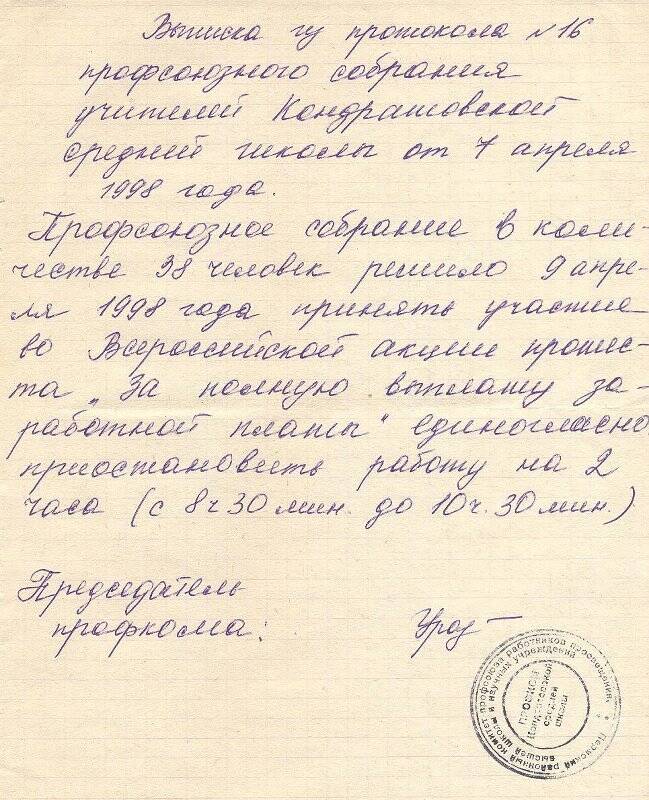 Выписка из протокола №16
профсоюзного собрания
учителей Кондратовской
средней школы от 7 апреля
1998 года.
Профсоюзное собрание в коли-
честве 38 человек решило 9 апре-
ля 1998 года принять участие
во Всероссийской акции протес-
та „За полную выплату за-
работной платы“ единогласно
приостановить работу на 2
часа (с 8 ч 30 мин. до 10 ч. 30 мин.)
Председатель
профкома:
Пермский районный комитет профсоюза работников просвещения,
высшей школы и научных учреждений
ПРОФКОМ
Кондратовской
средней
школы